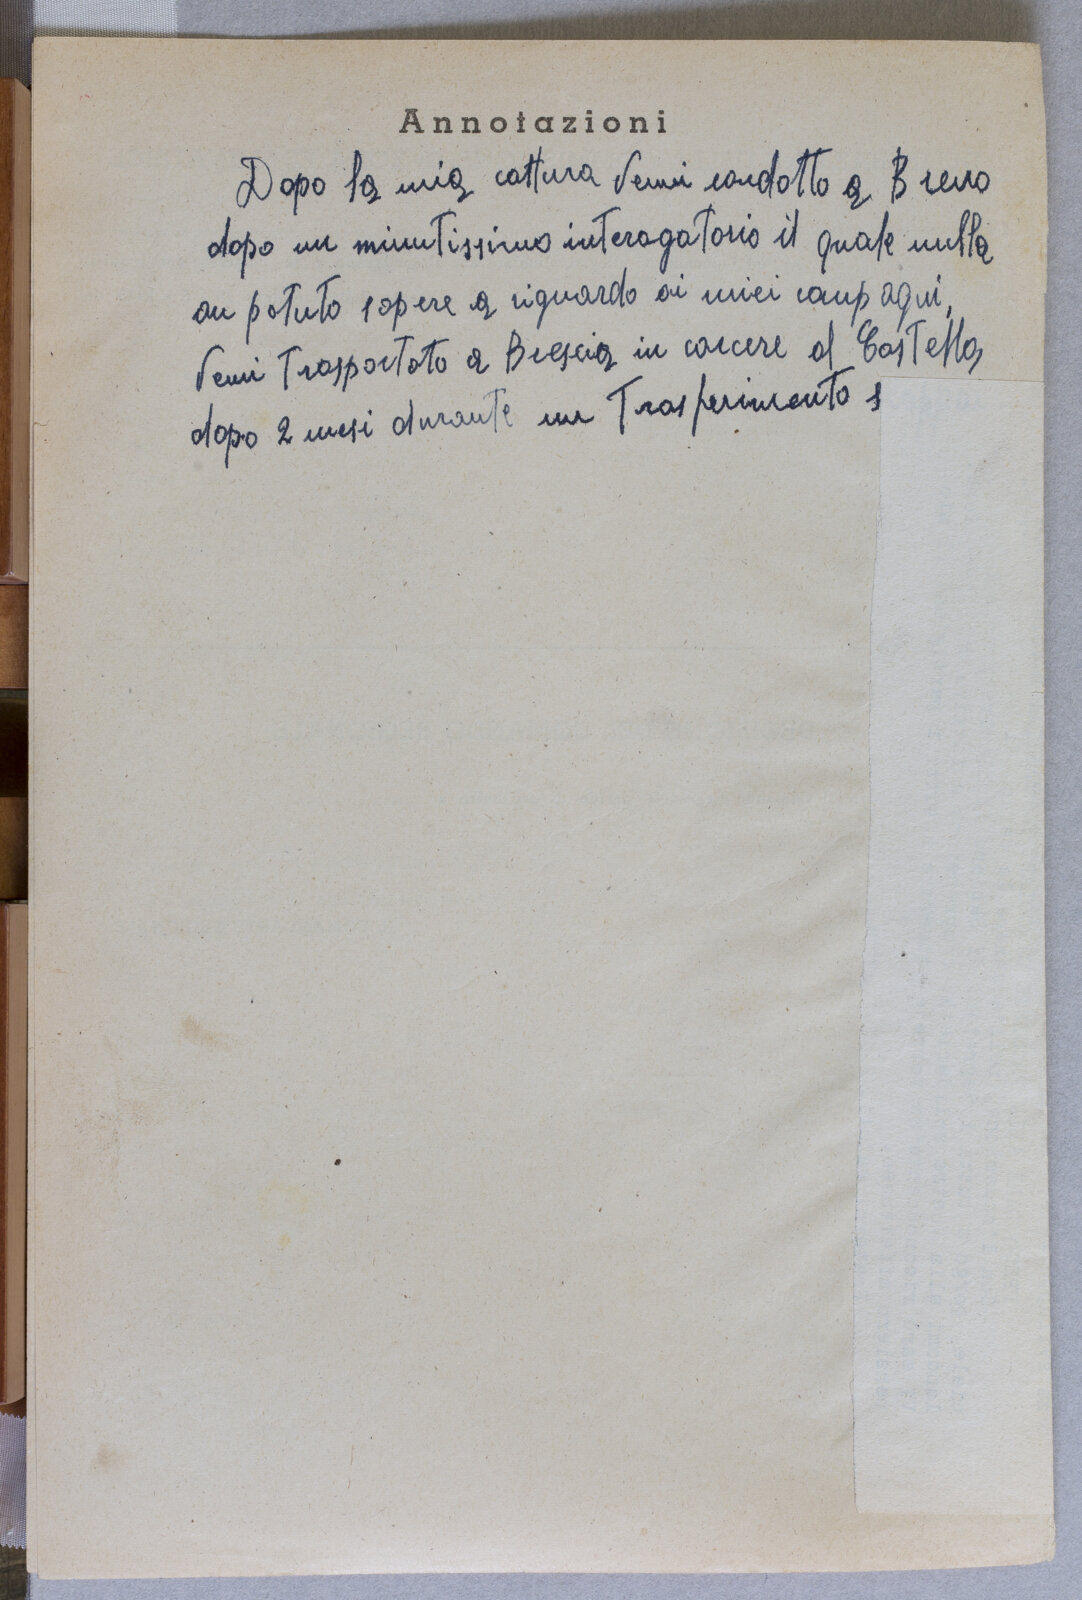 Annotazioni
Dopo la mia cattura venni condotto a Breno
dopo un minutissimo interogatorio il quale nulla
an potuto sapere a riguardo ai miei compagni,
venni trasportato a Brescia in carcere al Castello,
dopo 2 mesi durante un trasferimento s